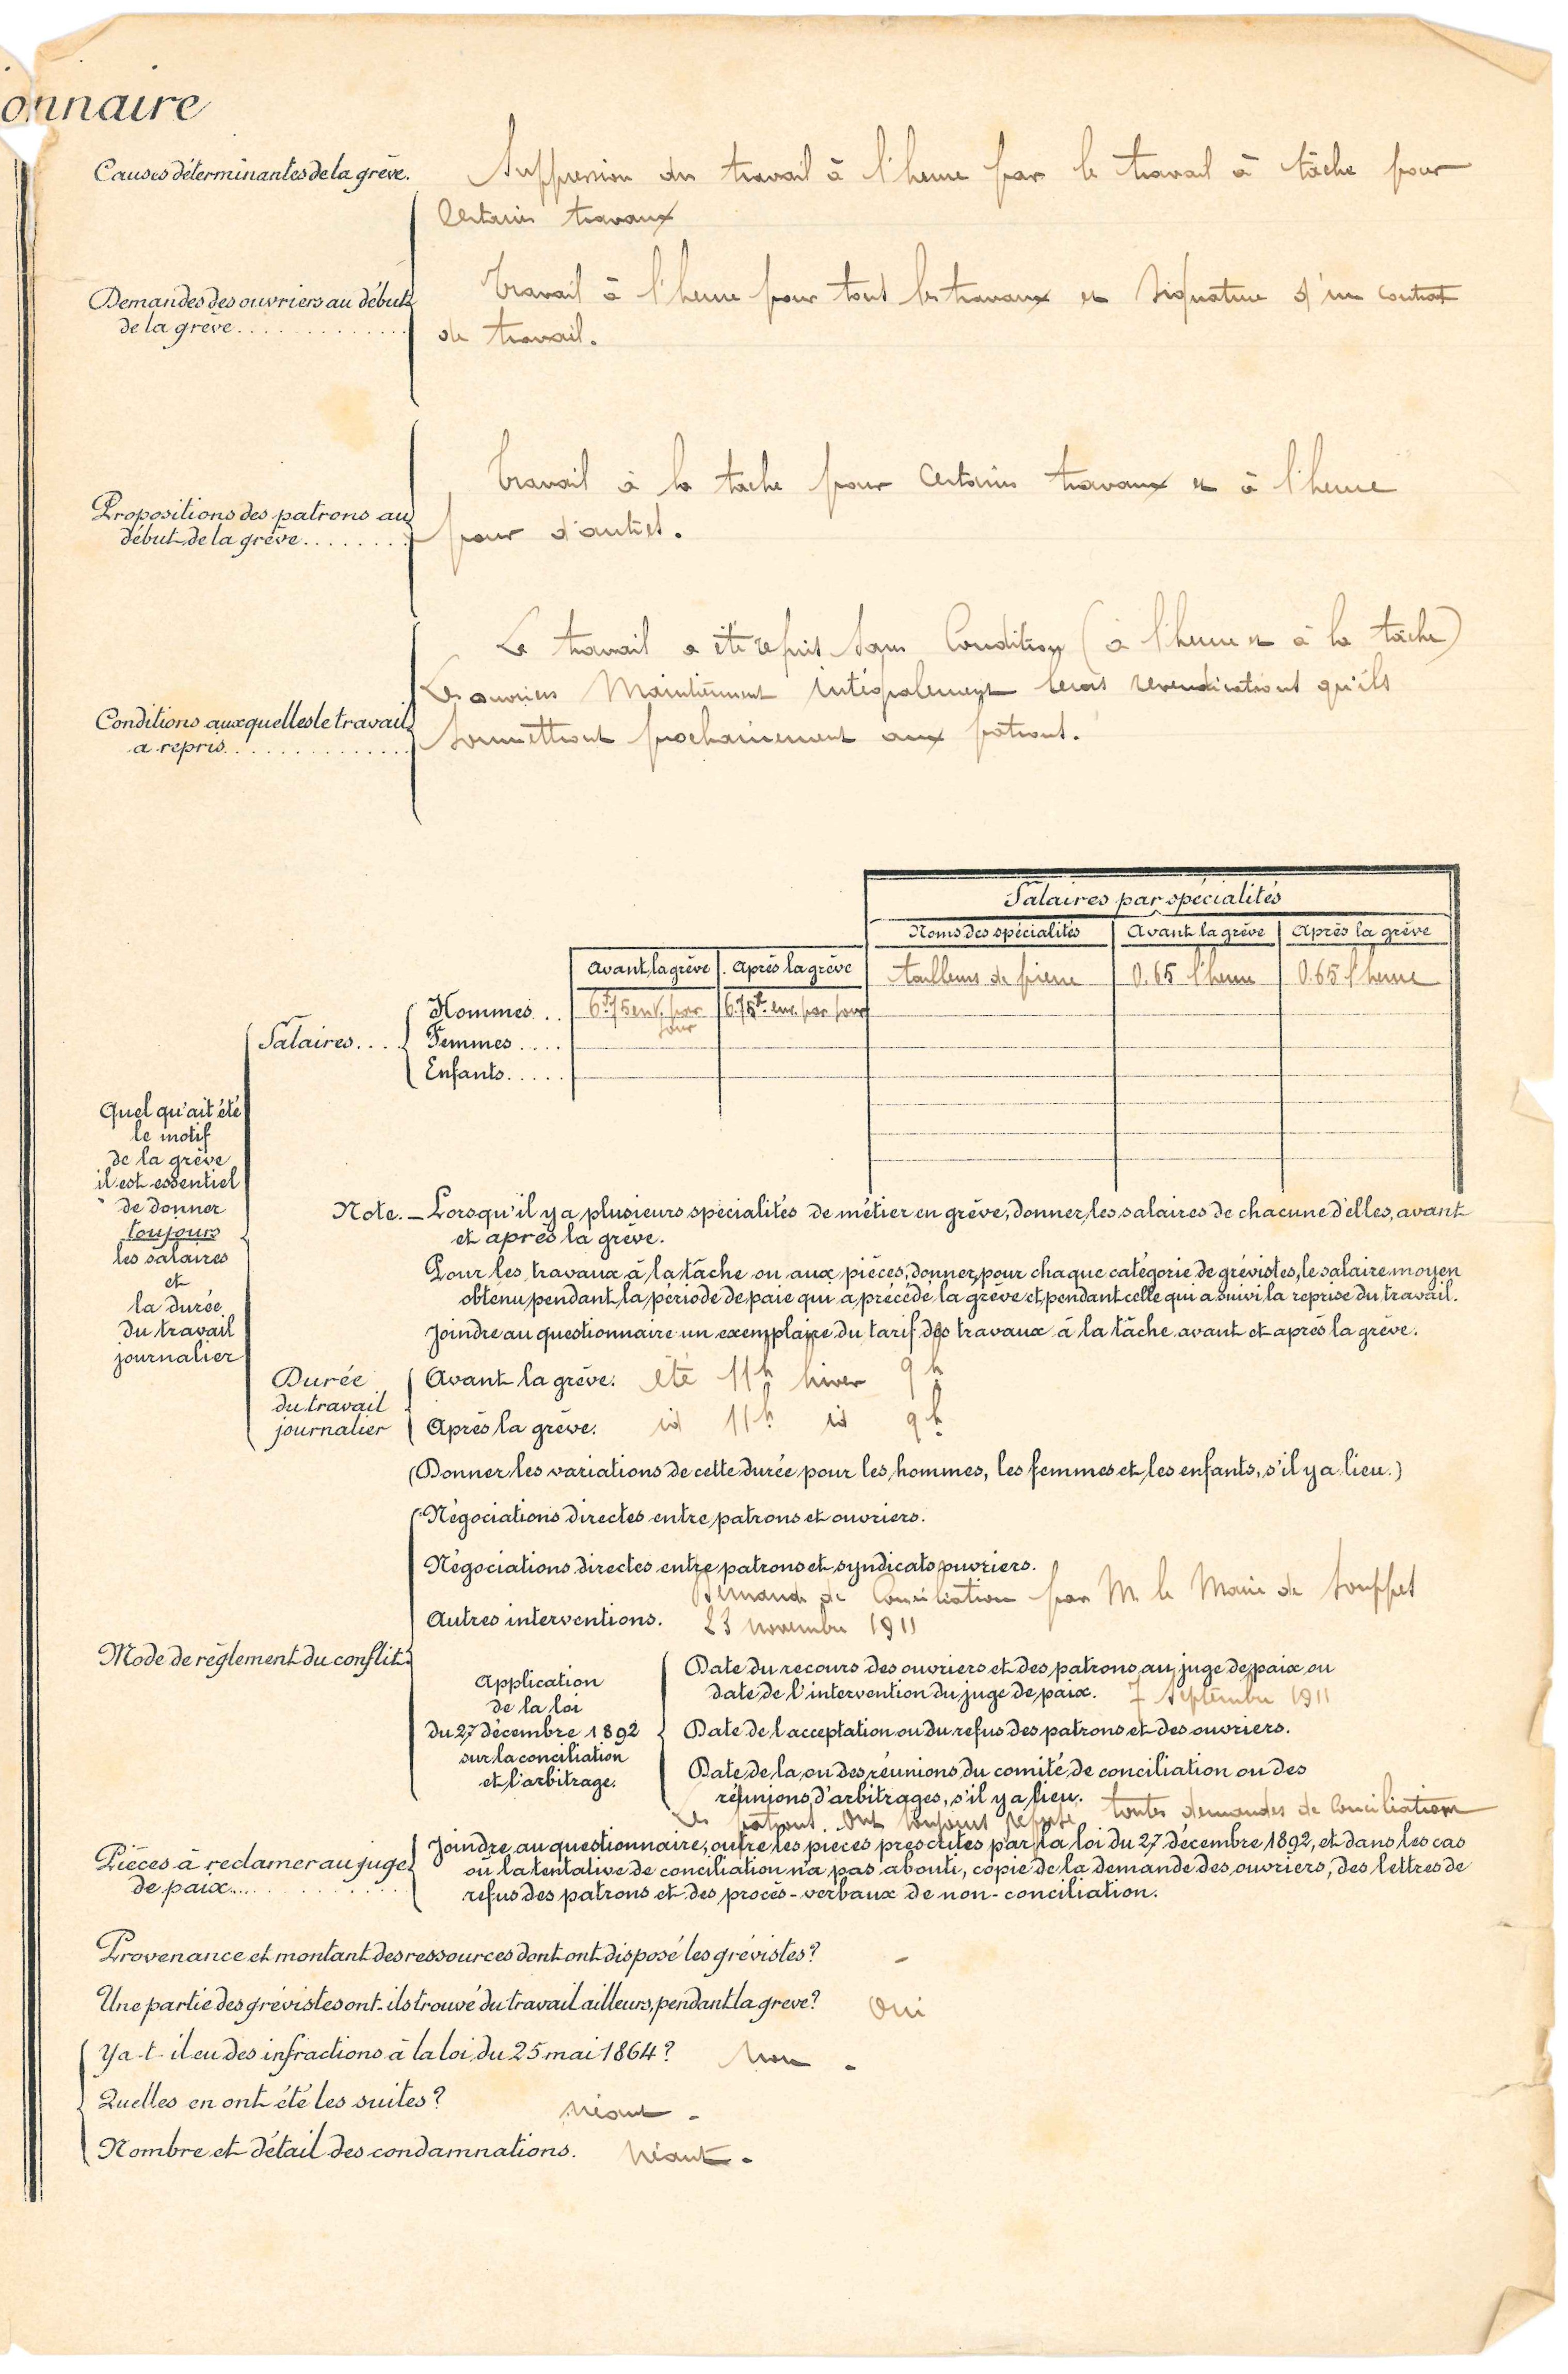 onnaire
Causes déterminantes de la grève. Suppression du travail à l'heure par le travail à tâche pour
Certains travaux
Demandes des ouvriers au début Travail à l'heure pour tout les travaux et signature d'un contrat
de la grève............. de travail.
Propositions des patrons au Travail à la tache pour Certains travaux et à l'heure
début de la grève........ pour d'autres.
Le travail a été repris sans Condition (à l'heure et à la tâche)
Les ouvriers Maintiennent intégralement leurs revendications qu'ils
Conditions auxquelles le travail soumettront prochainement aux patrons.
a repris..............
Salaires par spécialités
Noms des spécialités Avant la grève Après la grève
Avant la grève Après la grève tailleurs de pierre 0.65 l'heure 0.65 l'heure
Hommes... par jour par jour
Salaires.... Femmes....
Enfants.....
Quel qu'ait été
le motif
de la grève
il est essentiel
de donner
toujours
les salaires
et
la durée
du travail
journalier
Note. — Lorsqu'il y a plusieurs spécialités de métier en grève, donner les salaires de chacune d'elles, avant
et après la grève.
Pour les travaux à la tâche ou aux pièces, donner, pour chaque catégorie de grévistes, le salaire moyen
obtenu pendant la période de paie qui a précédé la grève et pendant celle qui a suivi la reprise du travail.
Joindre au questionnaire un exemplaire du tarif des travaux à la tâche avant et après la grève.
Durée Avant la grève. été 11h hiver 9h
du travail
journalier Après la grève. id 11h id 9h
(Donner les variations de cette durée pour les hommes, les femmes et les enfants, s'il y a lieu.)
Négociations directes entre patrons et ouvriers.
Négociations directes entre patrons et syndicats ouvriers.
Demande de Conciliation par M. le Maire de Souppes
Autres interventions. 23 novembre 1911
Mode de règlement du conflit
Application
de la loi
du 27 décembre 1892
sur la conciliation
et l'arbitrage.
Date du recours des ouvriers et des patrons au juge de paix ou
date de l'intervention du juge de paix. 7 Septembre 1911
Date de l'acceptation ou du refus des patrons et des ouvriers.
Date de la ou des réunions du comité de conciliation ou des
réunions d'arbitrages, s'il y a lieu.
Les patrons ont toujours refusé toutes demandes de Conciliation
Pièces à réclamer au juge
de paix...
Joindre au questionnaire, outre les pièces prescrites par la loi du 27 décembre 1892, et dans les cas
où la tentative de conciliation n'a pas abouti, copie de la demande des ouvriers, des lettres de
refus des patrons et des procès-verbaux de non-conciliation.
Provenance et montant des ressources dont ont disposé les grévistes? -
Une partie des grévistes ont-ils trouvé du travail ailleurs, pendant la grève? Oui
Y a-t-il eu des infractions à la loi du 25 mai 1864? Non -
Quelles en ont été les suites? Néant -
Nombre et détail des condamnations. Néant -